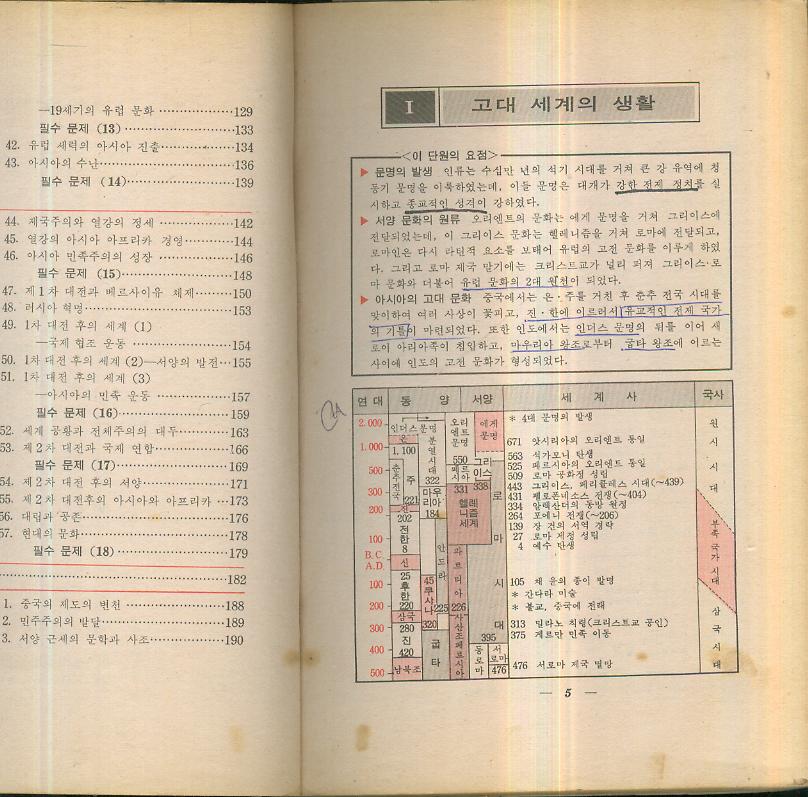 —19세기의 유럽 문화 ··················129
필수 문제 (13) ··························133
42. 유럽 세력의 아시아 진출 ···············134
43. 아시아의 수난 ·······················136
필수 문제 (14) ··························139
44. 제국주의와 열강의 정세 ···············142
45. 열강의 아시아 아프리카 경영 ···········144
46. 아시아 민족주의의 성장 ···············146
필수 문제 (15) ··························148
47. 제 1 차 대전과 베르사이유 체제 ········150
48. 러시아 혁명 ·························153
49. 1차 대전 후의 세계 (1)
—국제 협조 운동 ·······················154
50. 1차 대전 후의 세계 (2)—서양의 발전 ···155
51. 1차 대전 후의 세계 (3)
—아시아의 민족 운동 ···················157
필수 문제 (16) ··························159
52. 세계 공황과 전체주의의 대두 ···········163
53. 제 2 차 대전과 국제 연합 ·············166
필수 문제 (17) ··························169
54. 제 2 차 대전 후의 서양 ···············171
55. 제 2 차 대전후의 아시아와 아프리카 ···173
56. 대립과 공존 ·························176
57. 현대의 문화 ·························178
필수 문제 (18) ··························179
··········································182
1. 중국의 제도의 변천 ···················188
2. 민주주의의 발달 ·····················189
3. 서양 근세의 문학과 사조 ···············190
I 고대 세계의 생활
<이 단원의 요점>
▶ 문명의 발생 인류는 수십만 년의 석기 시대를 거쳐 큰 강 유역에 청
동기 문명을 이룩하였는데, 이들 문명은 대개가 강한 전제 정치를 실
시하고 종교적인 성격이 강하였다.
▶ 서양 문화의 원류 오리엔트의 문화는 에게 문명을 거쳐 그리이스에
전달되었는데, 이 그리이스 문화는 헬레니즘을 거쳐 로마에 전달되고,
로마인은 다시 라틴적 요소를 보태어 유럽의 고전 문화를 이루게 하였
다. 그리고 로마 제국 말기에는 크리스트교가 널리 퍼져 그리이스·로
마 문화와 더불어 유럽 문화의 2대 원천이 되었다.
▶ 아시아의 고대 문화 중국에서는 은·주를 거친 후 춘추 전국 시대를
맞이하여 여러 사상이 꽃피고, 진·한에 이르러서 유교적인 전제 국가
의 기틀이 마련되었다. 또한 인도에서는 인더스 문명의 뒤를 이어 새
로이 아리아족이 침입하고, 마우리아 왕조로부터 굽타 왕조에 이르는
사이에 인도의 고전 문화가 형성되었다.
연 대 동 양 서양 세 계 사 국사
2.000 인더스문명 오리엔트 문명 에게 문명 * 4대 문명의 발생 원
은
1.000 1.100 분열시대 671 앗시리아의 오리엔트 통일 시
550 그리이스 563 석가모니 탄생
500 춘추전국 주 페르시아 525 페르시아의 오리엔트 통일 시
322 509 로마 공화정 성립
300 마우리아 331 338 로 443 그리이스, 페리클레스 시대(~439) 대
221 헬레니즘 세계 431 펠로폰네소스 전쟁(~404)
200 진 184 334 알렉산더의 동방 원정
202 264 포에니 전쟁(~206)
100 전한 마 139 장 건의 서역 경략 부족 국가 시대
27 로마 제정 성립
8 안드라 파르티아 4 예수 탄생
B.C.
A.D. 신
100 25 후한 45 쿠샤나 시 105 채 윤의 종이 발명
* 간다라 미술
200 220 225 226 * 불교, 중국에 전래 삼
삼국 사산조페르시아
300 280 320 대 313 밀라노 칙령(크리스트교 공인) 국
진 굽타 395 375 게르만 민족 이동
400 420 동로마 서로마 시
500 남북조 476 476 서로마 제국 멸망 대
— 5 —